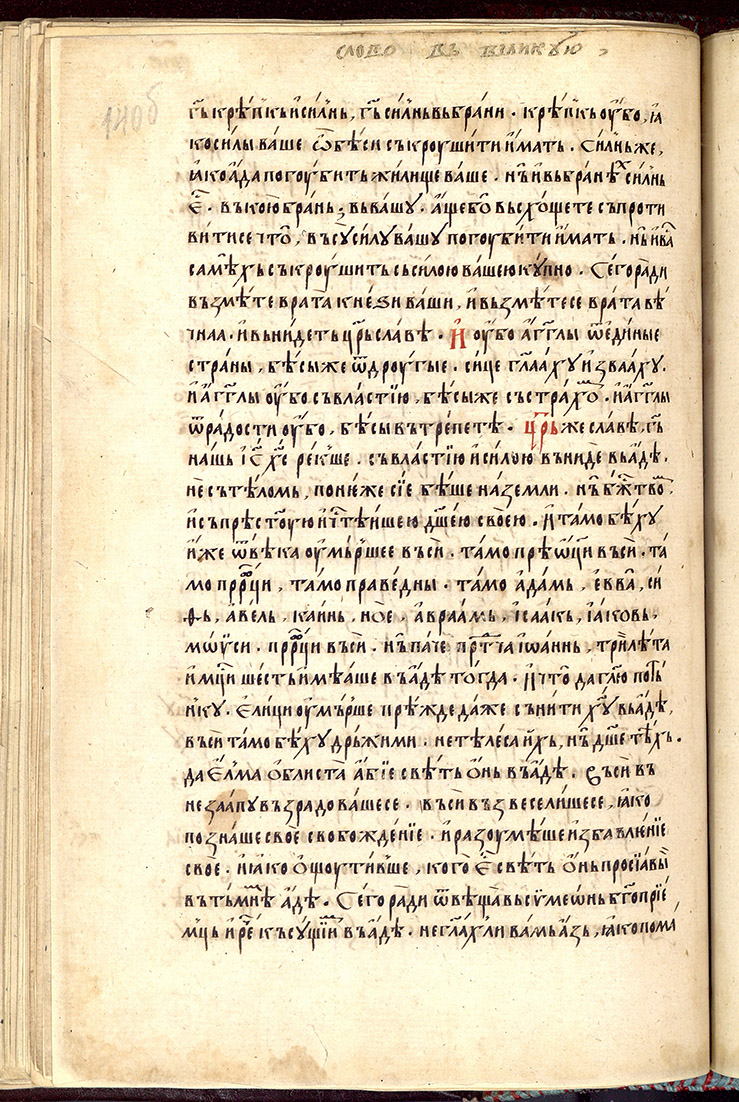 слово въ великую
140б
гь҃ крѣ́пкь и҆ си́лнь, гь҃ си́лнь вь бра́ни . крѣ́пкь оу҆́бо, ꙗ҆
ко си́лы ва́ше ѿ бѣ́си съкроуши́ти и҆́мать . си́лнь же,
ꙗ҆ко а҆́да погоуби́ть жили́ще ва́ше . нь и҆ вь бра́нѣⷯ си́лнь
е҆с҃ . въ кою̀ бра́нь ; вь ва́шꙋ . а҆́ще бо̀ въсхо́щете съпроти
ви́ти се что̀, въсꙋ̀ си́лꙋ ва́шꙋ погоуби́ти и҆́мать . нь и҆ ва́
самѣ́хь съкроуши́ть сь си́лою ва́шею кꙋ́пно . Сего̀ ра́ди
възмѣ́те врата̀ кне́ѕи ва́ши, и҆ вьзмѣ́те се врата̀ вѣ́
чнаа . и҆ вьни́деть цр҃ь сла́вѣ . И҆ оу҆́бо а҆́гг҃лы ѿ еди́ные
страны̀, бѣ́сы же ѿ дроугы́е . си́це гл҃аахꙋ и҆ зваахꙋ .
и҆ а҆́гг҃лы оу҆́бо съ вла́стїю, бѣ́сы же съ стра́хоⷨ . и҆ а҆́гг҃лы
ѿ ра́дости оу҆́бо, бѣ́сы въ тре́петѣ . Цр҃ь же сла́вѣ, гь҃
нашь і҆с҃ хс҃ ре́кꙋше . съ вла́стїю и҆ си́лою въни́де вь а҆́дѣ .
не сь тѣ́ломь, поне́же сїѐ бѣ́ше на землѝ . нь бж҃тво̀ⷨ
и҆ съ прѣс҃то́ую и҆ ч҃тѣ́ишею дш҃е́ю свое́ю . и҆ та́мо бѣ́хꙋ
и҆́же ѿ вѣ́ка оу҆мь́ршее въсѝ . та́мо прѣѿц҃и въсѝ . та́
мо прⷪ҇рци, та́мо праве́дны . та́мо а҆да́мь, е҆́вва, си́
ѳь, а҆́вель, ка́инь, но́е, а҆враа́мь, і҆саа́кь, і҆а́ковь,
мѡѷ́си . прⷪ҇рци въсѝ . нь па́че прⷣтча і҆ѡа́ннь, три́ лѣ́та
и҆ мц҃и ше́сть и҆мѣ́аше въ а҆́дѣ тогда̀ . и҆ что̀ да гл҃ю по ть́
нкꙋ . е҆ли́ци оу҆мь́рше прѣ́жде да́же съни́ти хꙋ҃ вь а҆́дѣ,
въсѝ та́мо бѣ́хꙋ дрьжи́ми . не тѣле́са и҆́хь, нь дш҃е тѣ́хь .
да е҆лма̀ ѻ҆блиста̀ а҆́бїе свѣ́ть ѻ҆́нь въ а҆́дѣ . въсѝ въ
незаапꙋ възра́доваше се . въсѝ въз весели́ше се, ꙗ҆́ко
позна́ше своѐ свобожде́нїе . и҆ разоумѣ́ше и҆збавле́нїе
своѐ . и҆ ꙗ҆́ко ѻ҆щоути́вше, кого̀ е҆с҃ свѣ́ть ѻ҆́нь просїа́вы
въ тьмнѣ̀ⷨ а҆́дѣ . Сего̀ ра́ди ѿвѣща̀ вьсѷмеѡ́нь бг҃опрїе́
мць и҆ ре҃ къ сꙋ́щїиⷨ въ а҆́дѣ . не гл҃ахь ли ва́мь а҆́зь, ꙗ҆́ко пома́